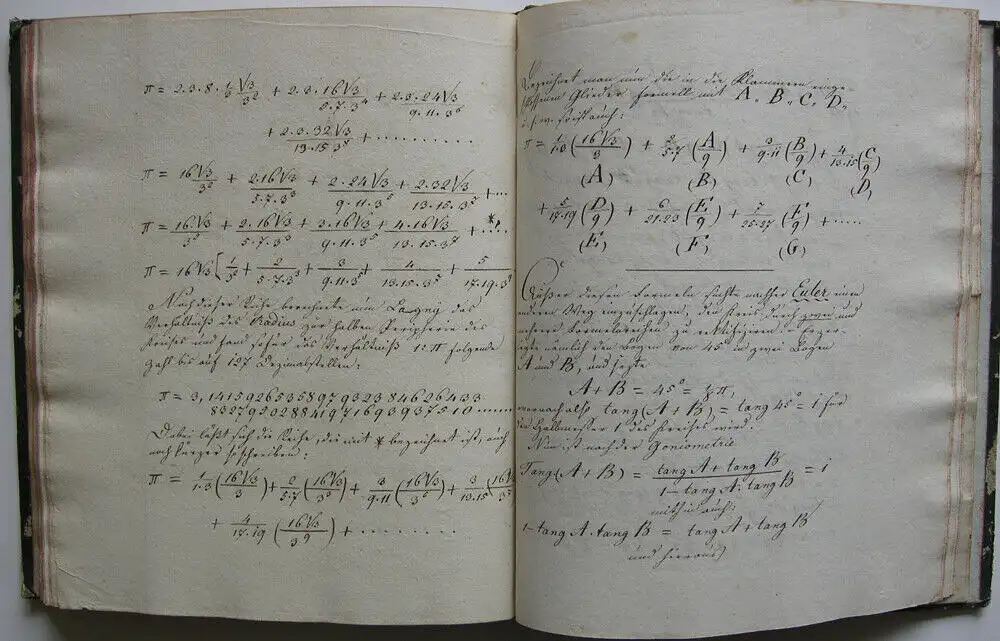 π = 2.3.8.⅓√3/3² + 2.3.16√3/5.7.3⁴ + 2.3.24√3/9.11.3⁶
+ 2.3.32√3/13.15.3⁸ + . . . . . . . . .
π = 16√3/3² + 2.16√3/5.7.3³ + 2.24√3/9.11.3⁵ + 2.32√3/13.15.3⁷ + ...
π = 16.√3/3² + 2.16√3/5.7.3³ + 3.16√3/9.11.3⁵ + 4.16√3/13.15.3⁷ + .... *
π = 16√3 [1/3² + 2/5.7.3³ + 3/9.11.3⁵ + 4/13.15.3⁷ + 5/17.19.3⁹
Nach dieser Reihe berechnete nun Lagny das
Verhältniß des Radius zur halben Peripherie des
Kreises und fand daher das Verhältniß 1:π folgende
Zahl bis auf 127 Dezimalstellen:
π = 3,14159265358979323846264 33
83279502884197169393751 0 ......
Dabei läßt sich die Reihe, die mit * bezeichnet ist, auch
noch kürzer so schreiben:
π = 1/1.3 (16√3/3) + 2/5.7 (16√3/3³) + 3/9.11 (16√3/3⁵) + 3/13.15 (16√3/3⁷
+ 4/17.19 (16√3/3⁹) + . . . . . . . .
Bezeichnet man nun die in die Klammern einge-
schlossenen Glieder formell mit A, B, C, D,
u.s.w. so ist auch:
π = 1/1.3 (16√3/3) + 2/5.7 (A/9) + 3/9.11 (B/9) + 4/13.15 (C/9)
(A) (B) (C) (D)
+ 5/17.19 (D/9) + 6/21.23 (E/9) + 7/25.27 (F/9) + .....
(E) (F) (G)
Außer diesen Formeln suchte nachher Euler einen
anderen Weg einzuschlagen, den Kreis durch zwei und
mehrere Formelreihen zu rektifiziren. Er zer-
legte nämlich den Bogen von 45° in zwei Bogen
A und B, und setzte
A + B = 45° = ¼ π,
wornach also tang (A + B) = tang 45° = 1 für
den Halbmesser 1 des Kreises wird.
Nun ist nach der Goniometrie
Tang (A + B) = tang A + tang B / 1 – tang A. tang B = 1
mithin auch:
1 – tang A. tang B = tang A + tang B
und hieraus)